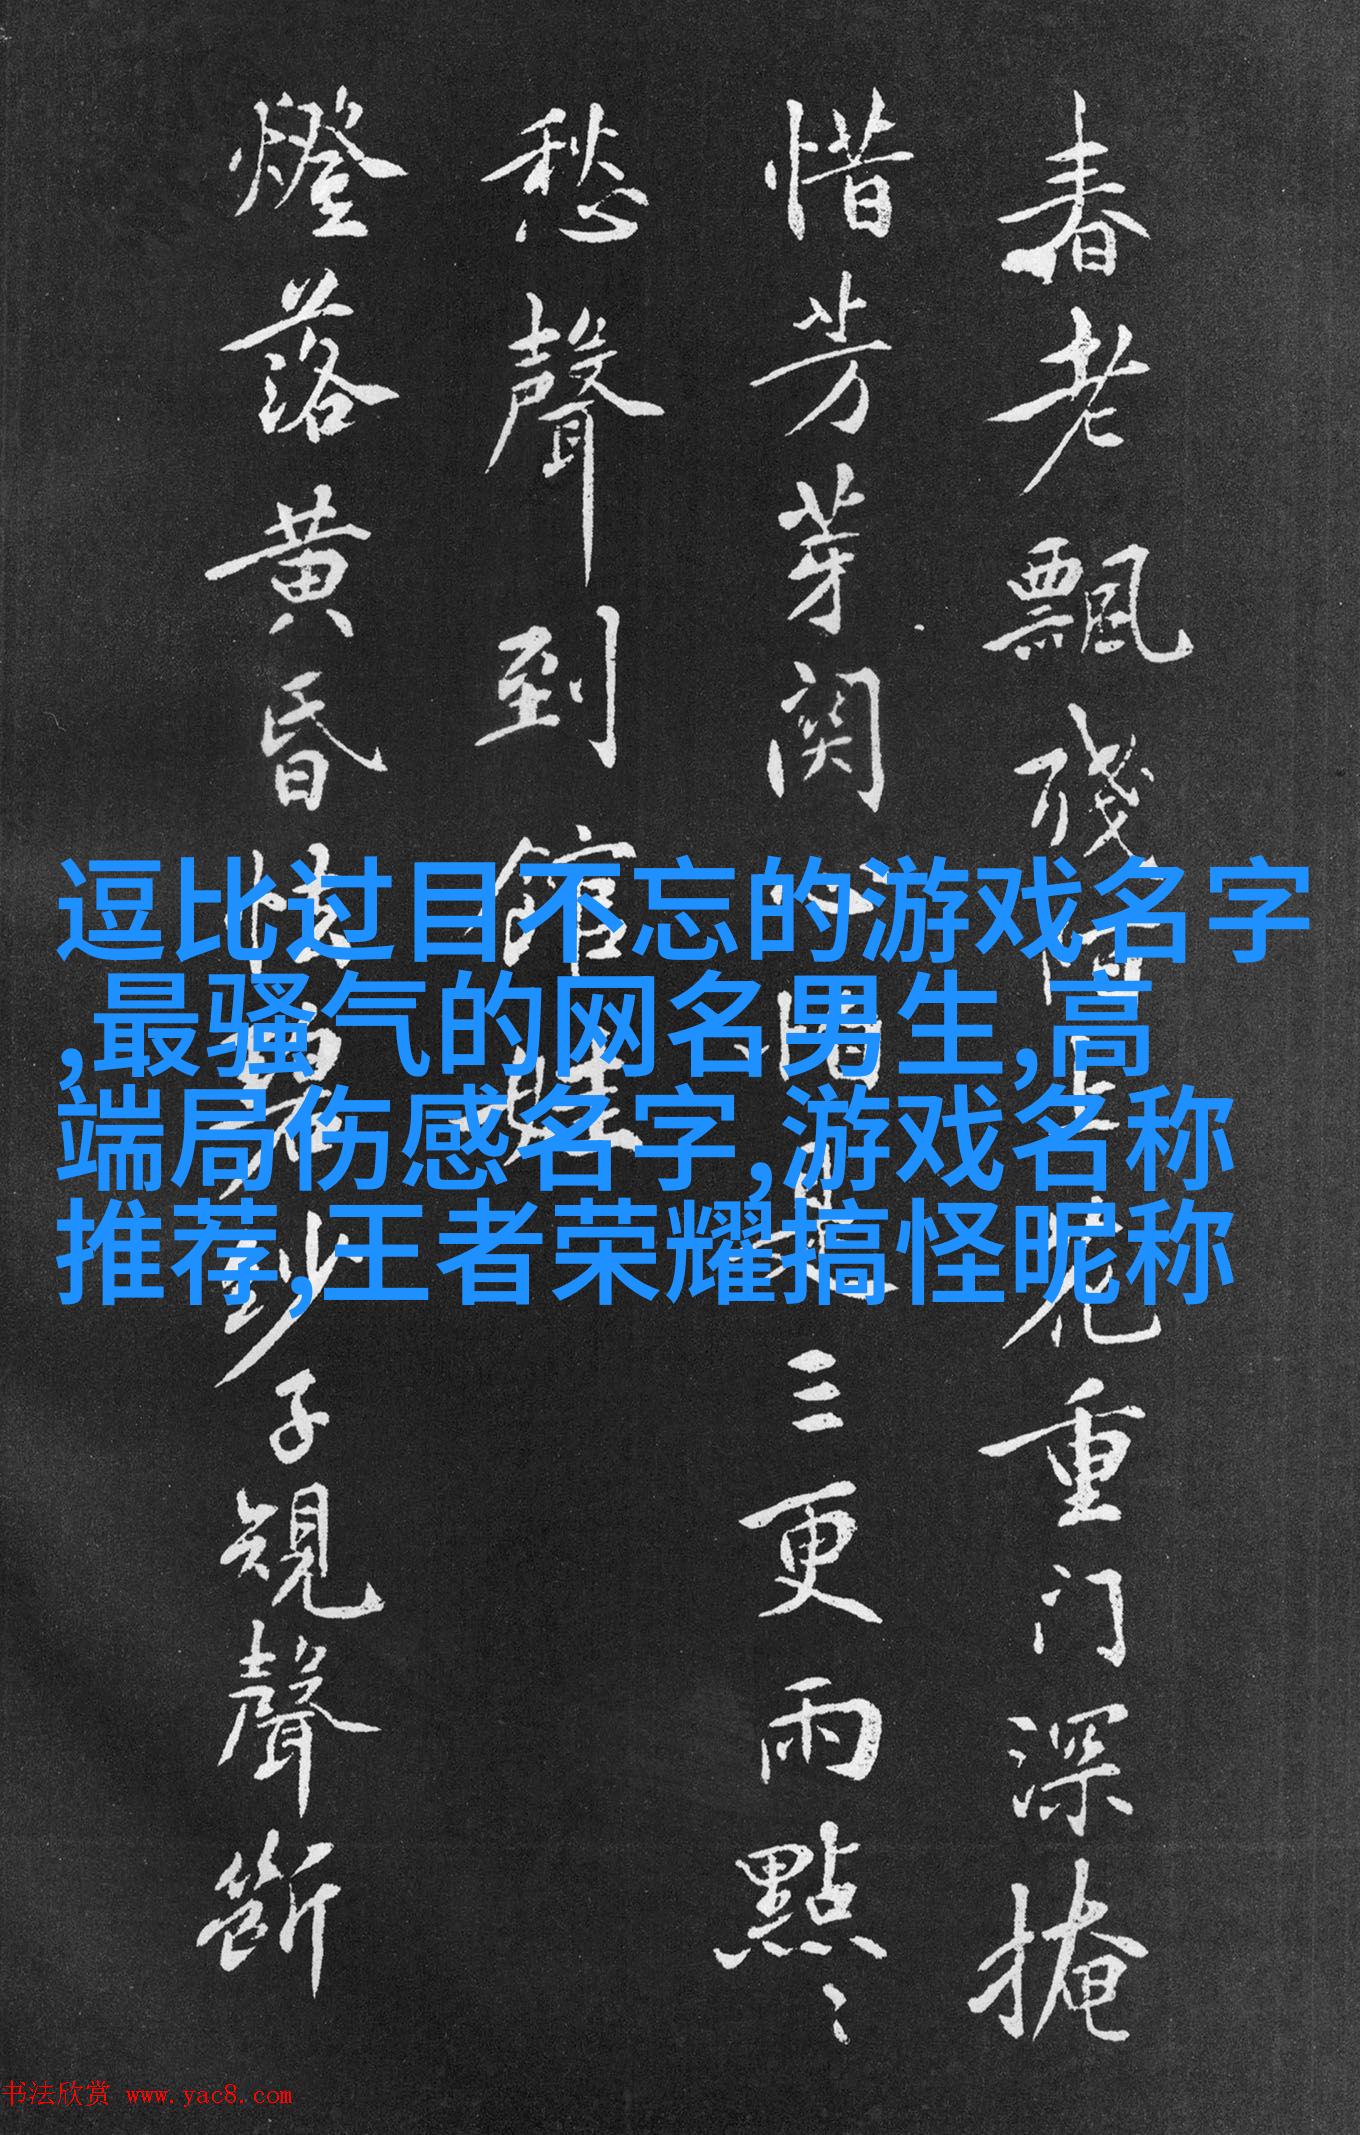 春老飄殘陌上花重门深掩
惜芳芽関心是三更雨點〻
愁聲到館娃
燈落黄昏怯碧紗子規聲斷
逗比过目不忘的游戏名字
,最骚气的网名男生,高
端局伤感名字,游戏名称
推荐,王者荣耀搞怪昵称
书法欣赏 www.yac8.com